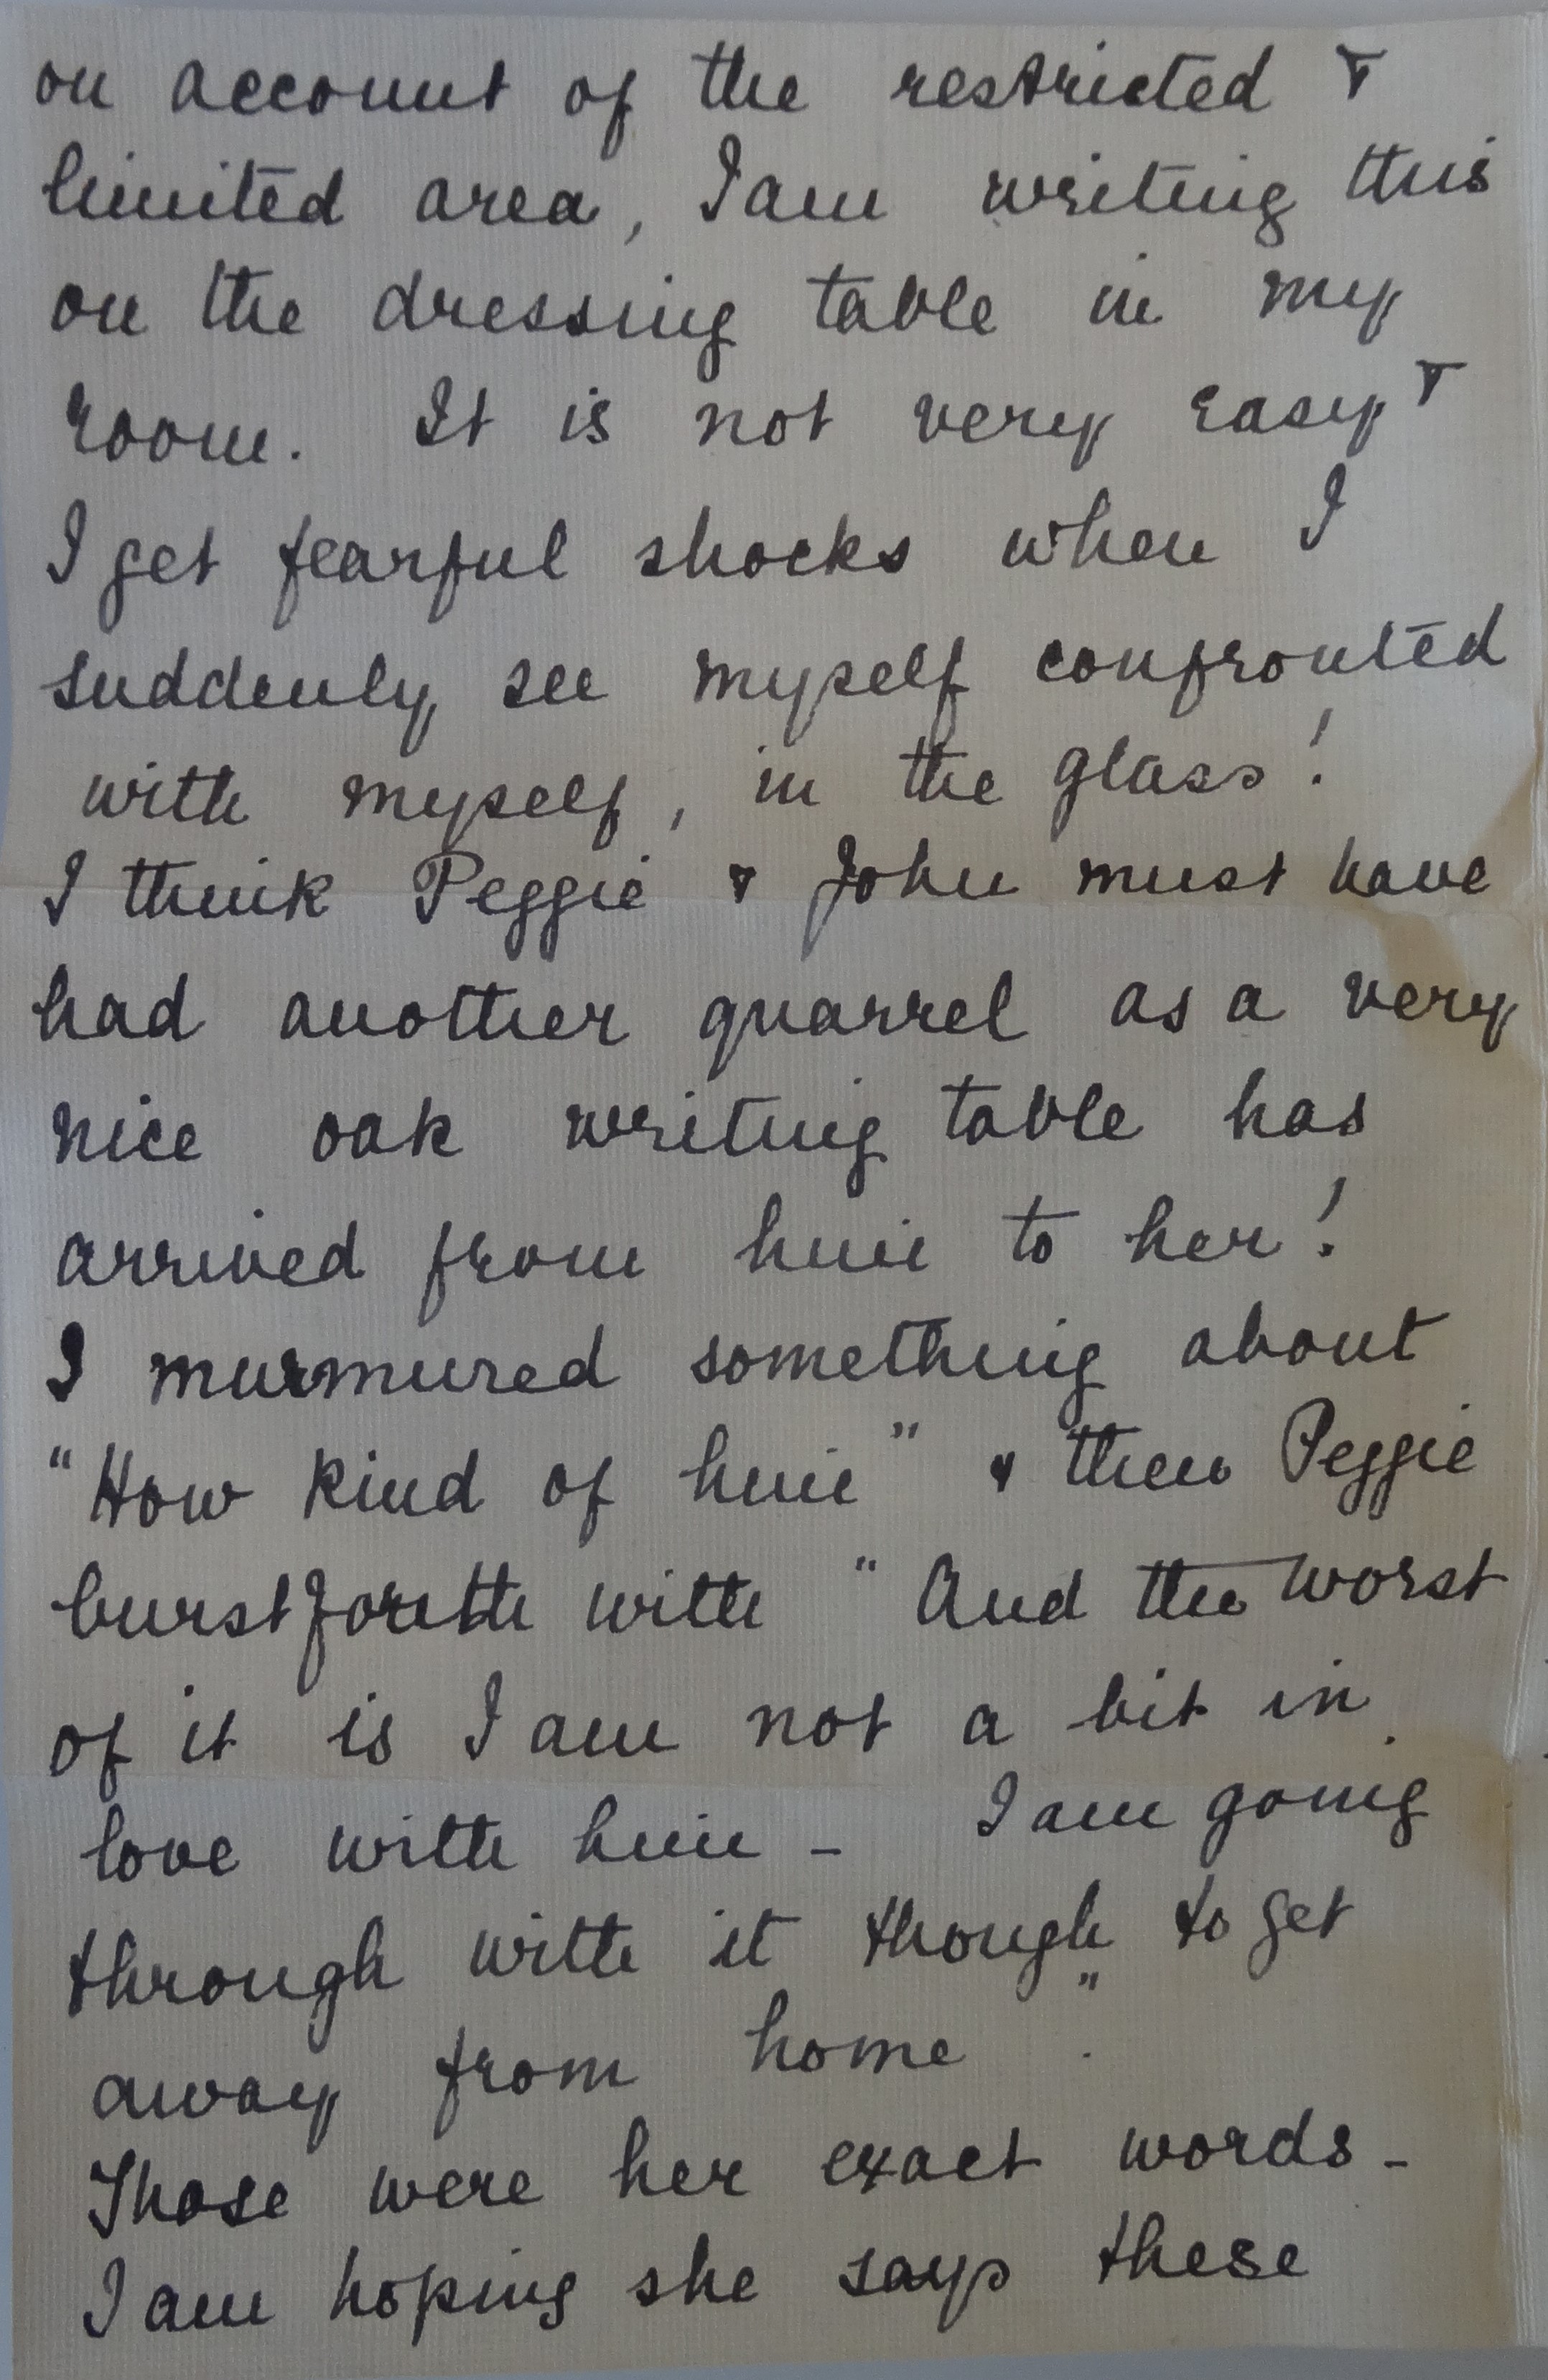 on account of the restricted &
limited area, I am writing this
on the dressing table in my
room. It is not very easy &
I get fearful shocks when I
suddenly see myself confronted
with myself, in the glass!
I think Peggie & John must have
had another quarrel as a very
nice oak writing table has
arrived from him to her!
I murmured something about
"How kind of him" & then Peggie
burst forth with "And the worst
of it is I am not a bit in
love with him - I am going
through with it though to get
away from home".
Those were her exact words -
I am hoping she says these